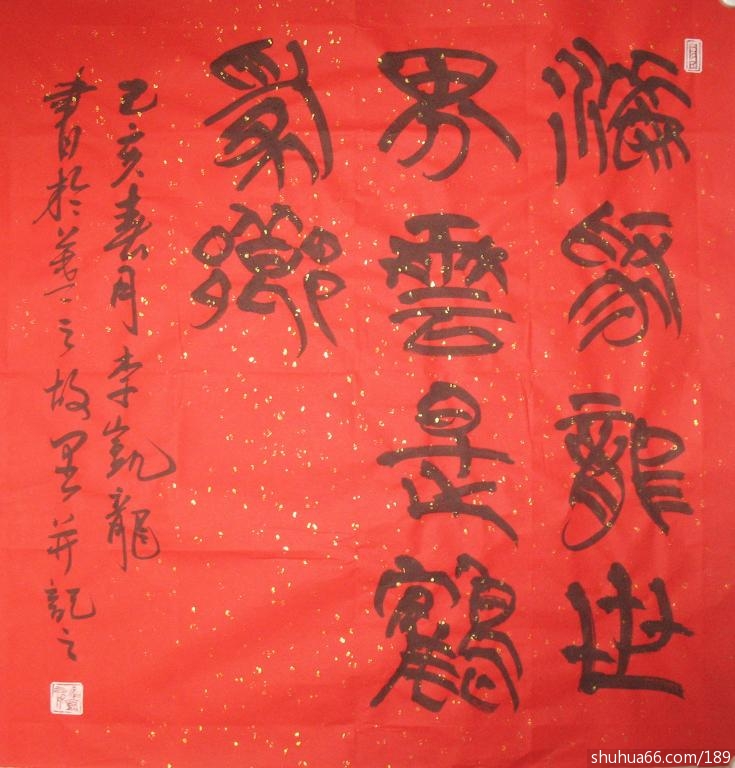 海為龍世
界雲是鶴
家鄉
乙亥春月李凱龍
書於羲之故里并記之
shuhua66.com/189